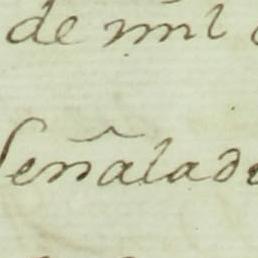 de mil
Señalad